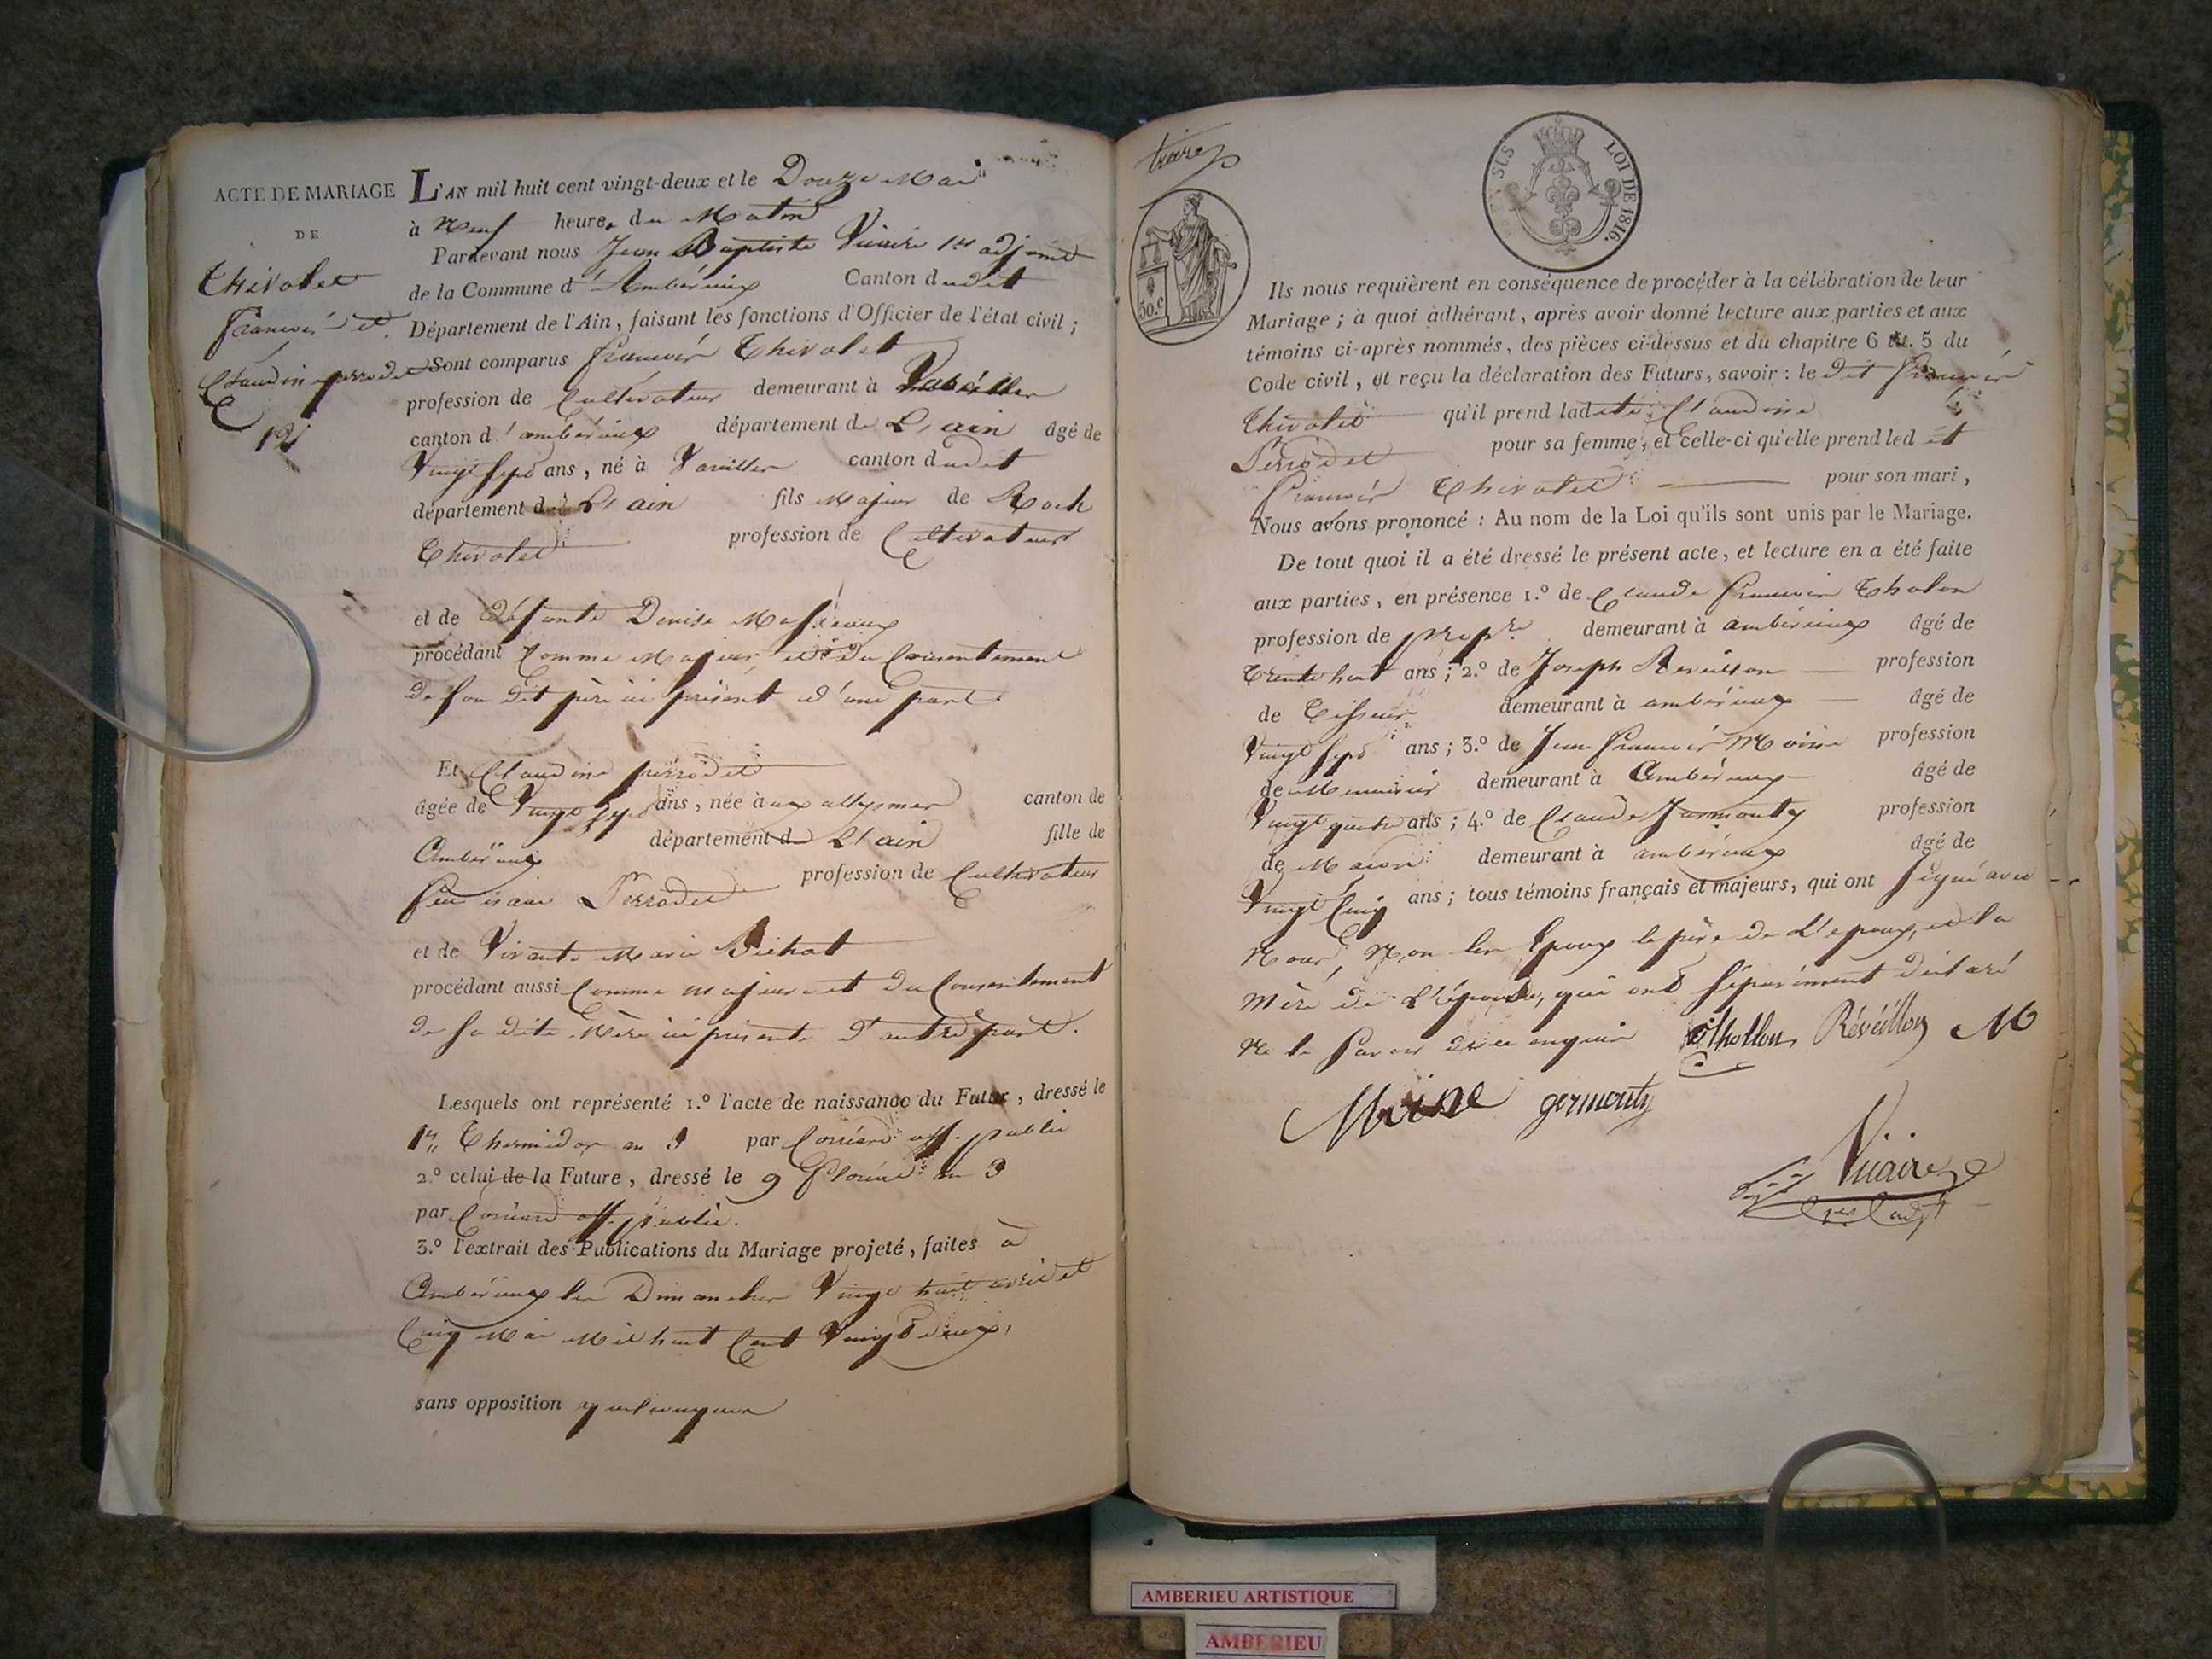 ACTE DE MARIAGE
DE
Thivolet
François et
Claudine perrodet
12
L'AN mil huit cent vingt-deux et le Douze Mai
à Neuf heures du Matin
Pardevant nous Jean Baptiste Vicaire 1er adjoint
de la Commune d'Ambérieux Canton dudit
Département de l'Ain, faisant les fonctions d'Officier de l'état civil ;
Sont comparus François Thivolet
profession de Cultivateur demeurant à Vareilles
canton d'ambérieux département de L'ain âgé de
Vingt sept ans, né à Vareilles canton dudit
département de L'ain fils Majeur de Roch
Thivolet profession de Cultivateur
et de défunte Denise
procédant Comme Majeur et du Consentement
de son dit père ici présent d'une part
Et Claudine perrodet
âgée de Vingt sept ans, née aux allymes canton de
Ambérieux département de L'ain fille de
feu Perrodet profession de Cultivateur
et de Vivante Marie Bichat
procédant aussi Comme majeure et du Consentement
de sa dite Mère ici présente d'autre part.
Lesquels ont représenté 1.º l'acte de naissance du Futur, dressé le
1er Thermidor an 3 par off. public
2.º celui de la Future, dressé le 9 floréal an 3
par off. public.
3.º l'extrait des Publications du Mariage projeté, faites à
Ambérieux les Dimanches Vingt huit avril et
Cinq Mai Mil huit Cent Vingt deux,
sans opposition quelconque
50.c
LOI DE 1816.
Ils nous requièrent en conséquence de procéder à la célébration de leur
Mariage ; à quoi adhérant, après avoir donné lecture aux parties et aux
témoins ci-après nommés, des pièces ci-dessus et du chapitre 6 tit. 5 du
Code civil, et reçu la déclaration des Futurs, savoir : le dit François
Thivolet qu'il prend ladite Claudine
Perrodet pour sa femme, et celle-ci qu'elle prend ledit
François Thivolet pour son mari,
Nous avons prononcé : Au nom de la Loi qu'ils sont unis par le Mariage.
De tout quoi il a été dressé le présent acte, et lecture en a été faite
aux parties, en présence 1.º de Claude François Tholon
profession de propre demeurant à ambérieux âgé de
Trente huit ans ; 2.º de Joseph Reveillon profession
de Tisseur demeurant à ambérieux âgé de
Vingt sept ans ; 3.º de Jean François Moine profession
de Menuisier demeurant à Ambérieux âgé de
Vingt quatre ans ; 4.º de Claude Jarmonty profession
de Maçon demeurant à ambérieux âgé de
Vingt Cinq ans ; tous témoins français et majeurs, qui ont signé avec
Nous, Non les Epoux le père de L'epoux, et la
Mère de L'épouse, qui ont séparément déclaré
Ne le savoir de ce enquis Thollon Révéillon M
Moine germonty
Vicaire
AMBERIEU ARTISTIQUE
AMBERIEU